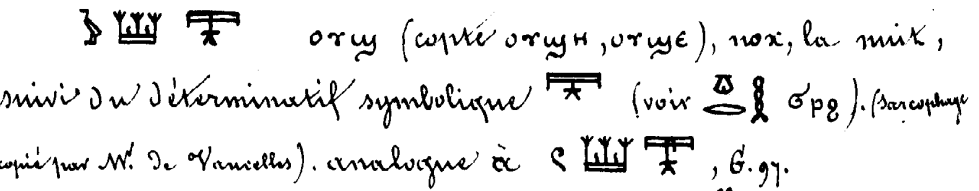 𓅱𓆷𓇰 ⲟⲩϣ (copte ⲟⲩϣⲏ, ⲟⲩϣⲉ), nox, la nuit,
suivi du déterminatif symbolique 𓇰 (voir ϭⲣϩ). (sarcophage
copié par Mr. De Vaucelles). analogue à 𓏲𓆷𓇰, G. 97.